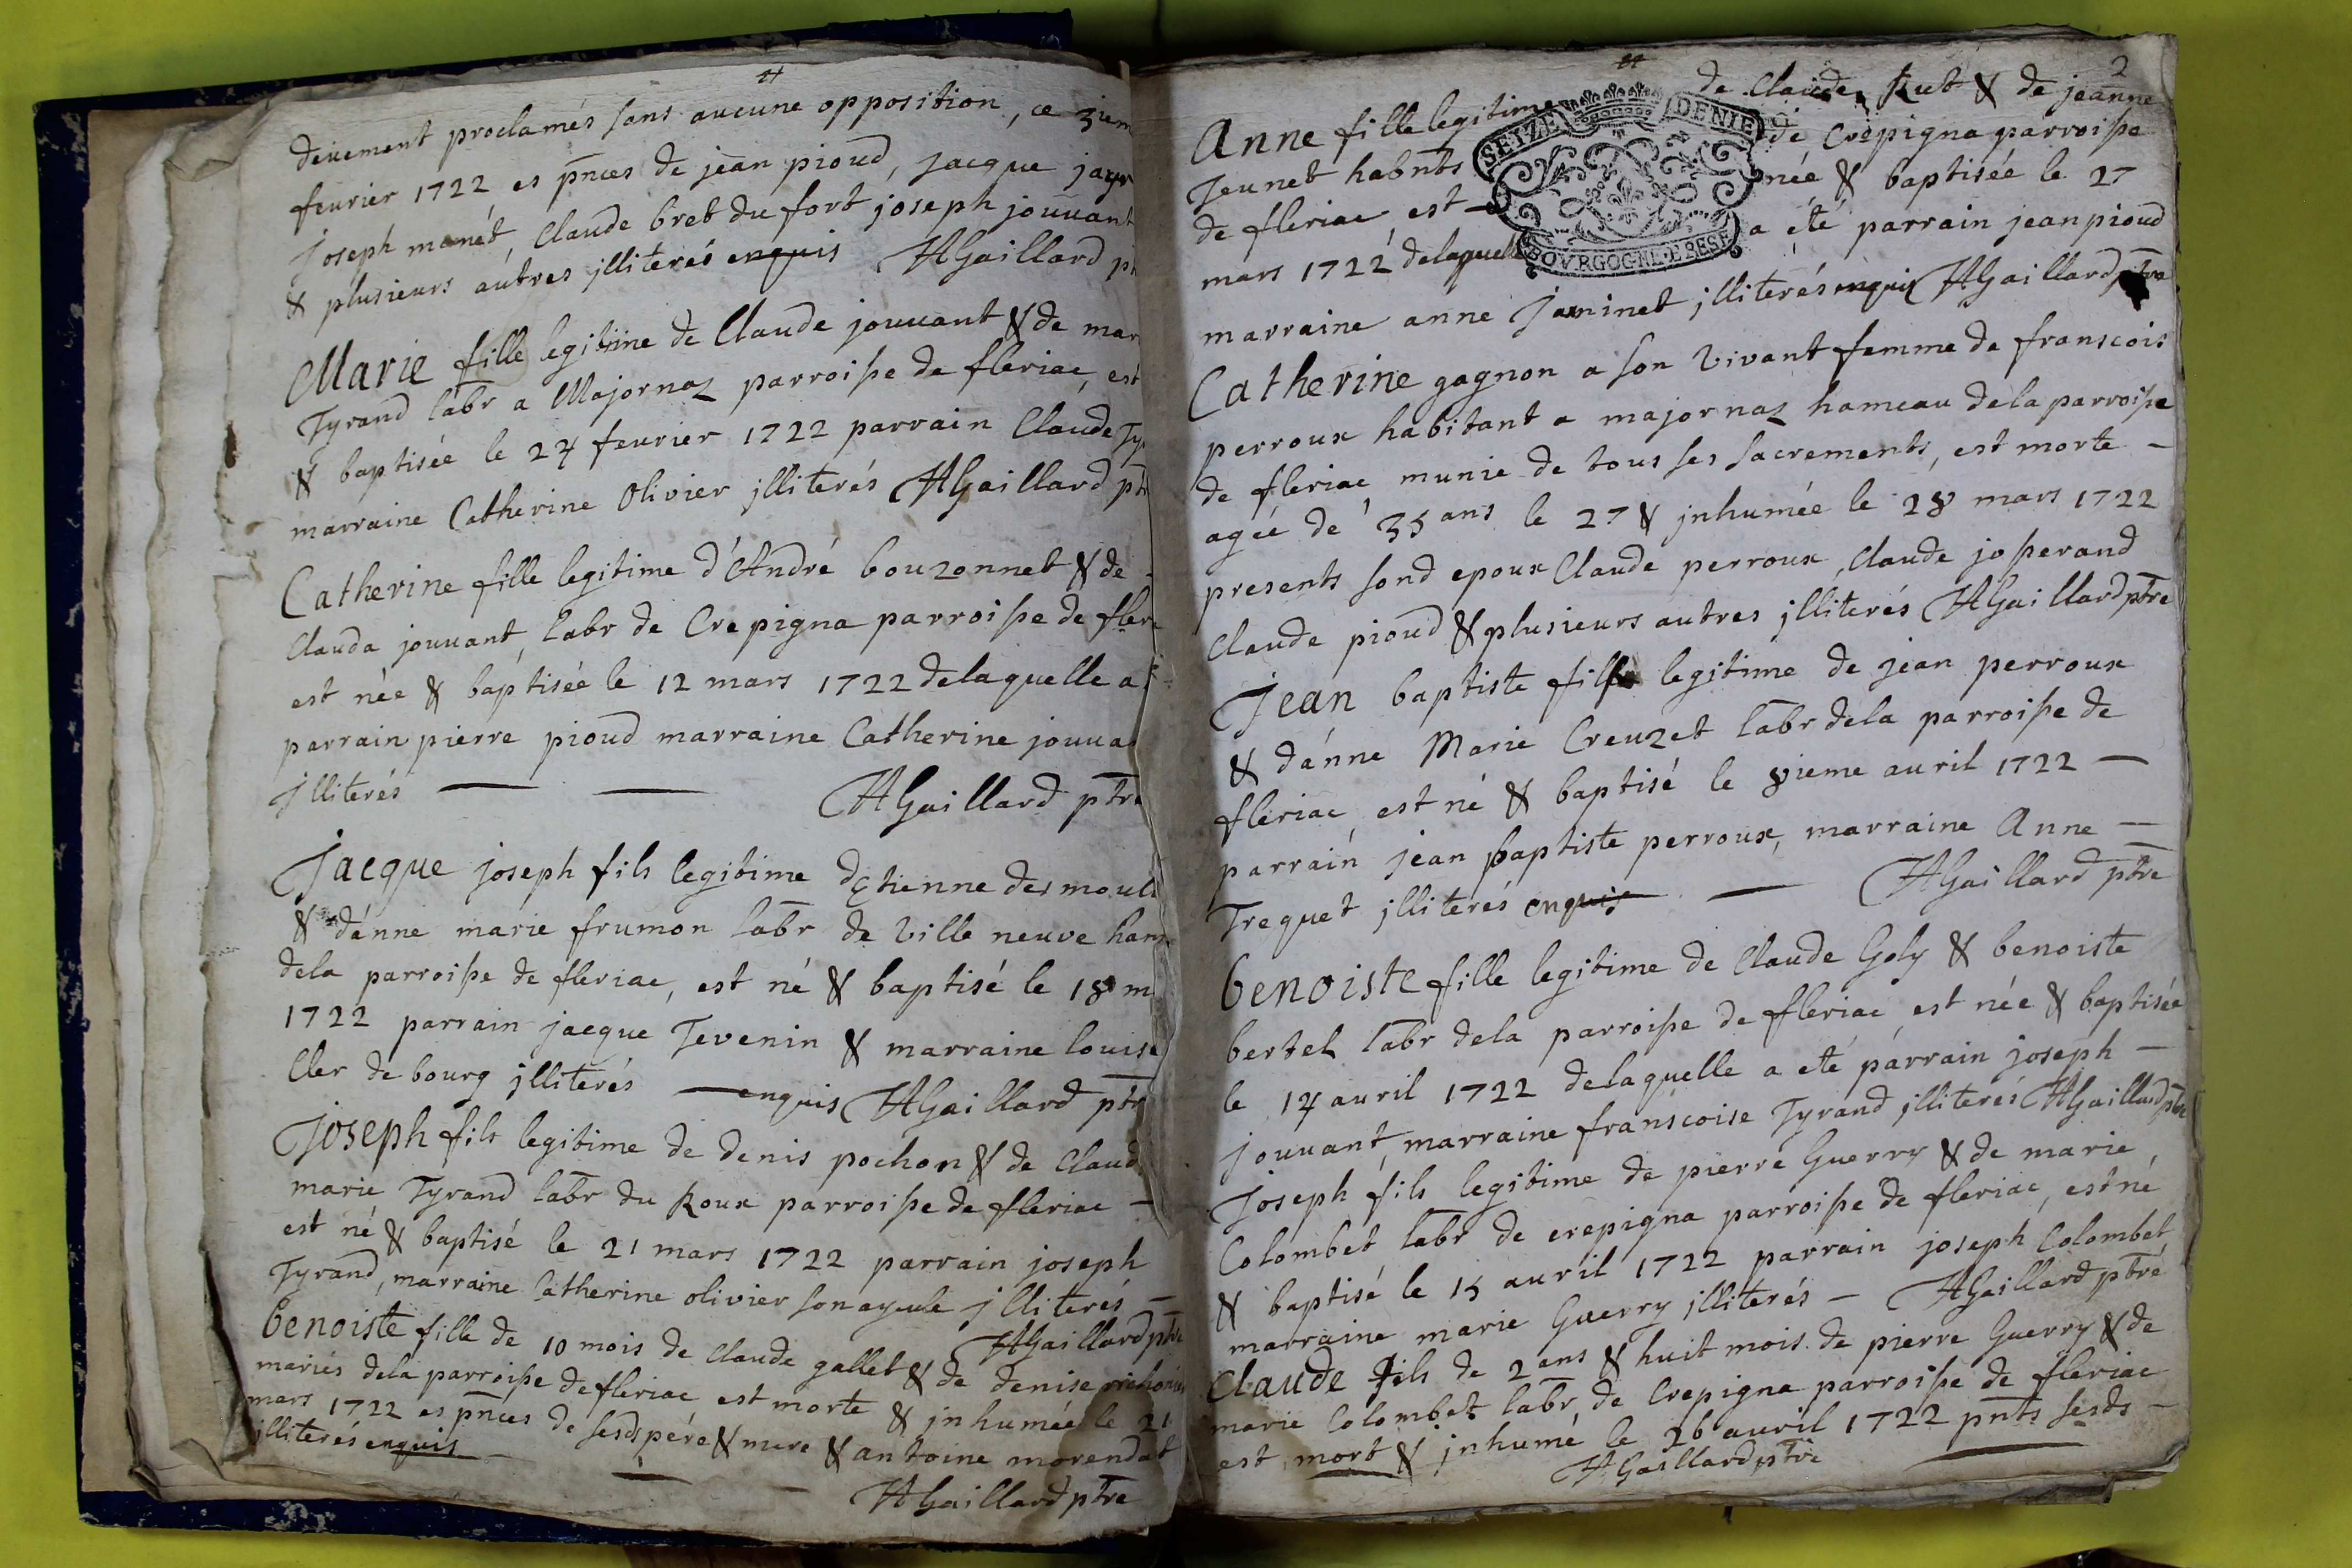 devement proclamés sans aucune opposition, ce 3iem
feurier 1722 es pnces de jean pioud, jacque
joseph manét, Claude bret du fort joseph jouuant
& plusieurs autres jlliterés enquis AGaillard
Marie fille legitime de Claude jouuant & de mar
Tyrand labr a Majornaz parroisse de fleriac, est
& baptisée le 24 feurier 1722 parrain Claude Ty
marraine Catherine Olivier jlliterés AGaillard ptr
Catherine fille legitime d'André bouzonnet & de
Clauda jouuant, labr de Crepigna parroisse de fler
est née & baptisée le 12 mars 1722 delaquelle a
parrain pierre pioud marraine Catherine jouua
jlliterés AGaillard ptre
Jacque joseph fils legitime dEtienne des moul
& dánne marie frumon labr de Ville neuve ham
dela parroisse de fleriac, est né & baptisé le 18 m
1722 parrain jacque Tevenin & marraine louise
Cler de bourg jlliterés enquis AGaillard ptr
Joseph fils legitime de denis pochon & de Claud
marie Tyrand labr du Roux parroisse de fleriac
est né & baptisé le 21 mars 1722 parrain joseph
Tyrand, marraine Catherine olivier son ayeule jlliterés
AGaillard ptre
benoiste fille de 10 mois de Claude gallet & de denise
mariés dela parroisse de fleriac est morte & jnhumée le 21
mars 1722 es pnces de sesds pére & mere & antoine morendat
jlliterés enquis
AGaillard ptre
2
Anne fille legitime de Claude Rut & de jeanne
SEYZE DENIE
BOVRGOGNE·BRESE
Jeunet habnts de Crepigna parroisse
de fleriac, est née & baptisée le 27
mars 1722 delaquelle a été parrain jean pioud
marraine anne Janinet jlliterés enquis AGaillard ptre
Catherine gagnon a son Vivant femme de franscois
perroux habitant a majornaz hameau dela parroisse
de fleriac munie de tous ses sacrements, est morte
agée de 35 ans le 27 & jnhumée le 28 mars 1722
presents sond epoux Claude perroux, Claude josserand
Claude pioud & plusieurs autres jlliterés AGaillard ptre
Jean baptiste fils legitime de jean perroux
& dánne Marie Creuzet labr dela parroisse de
fleriac, est né & baptisé le 8ieme auril 1722
parrain jean baptiste perroux, marraine Anne
Trequet jlliterés enquis AGaillard ptre
benoiste fille legitime de Claude Goly & benoiste
bertel labr dela parroisse de fleriac est née & baptisée
le 14 auril 1722 delaquelle a eté parrain joseph
jouuant, marraine franscoise Tyrand jlliterés AGaillard ptre
Joseph fils legitime de pierre Guerry & de marie
Colombet labr de crepigna parroisse de fleriac, est né
& baptisé le 15 auril 1722 parrain joseph Colombet
marraine marie Guerry jlliterés AGaillard ptre
Claude fils de 2 ans & huit mois de pierre Guerry & de
marie Colombet labr de Crepigna parroisse de fleriac
est mort & jnhumé le 26 auril 1722 pnts sesds
AGaillard ptre